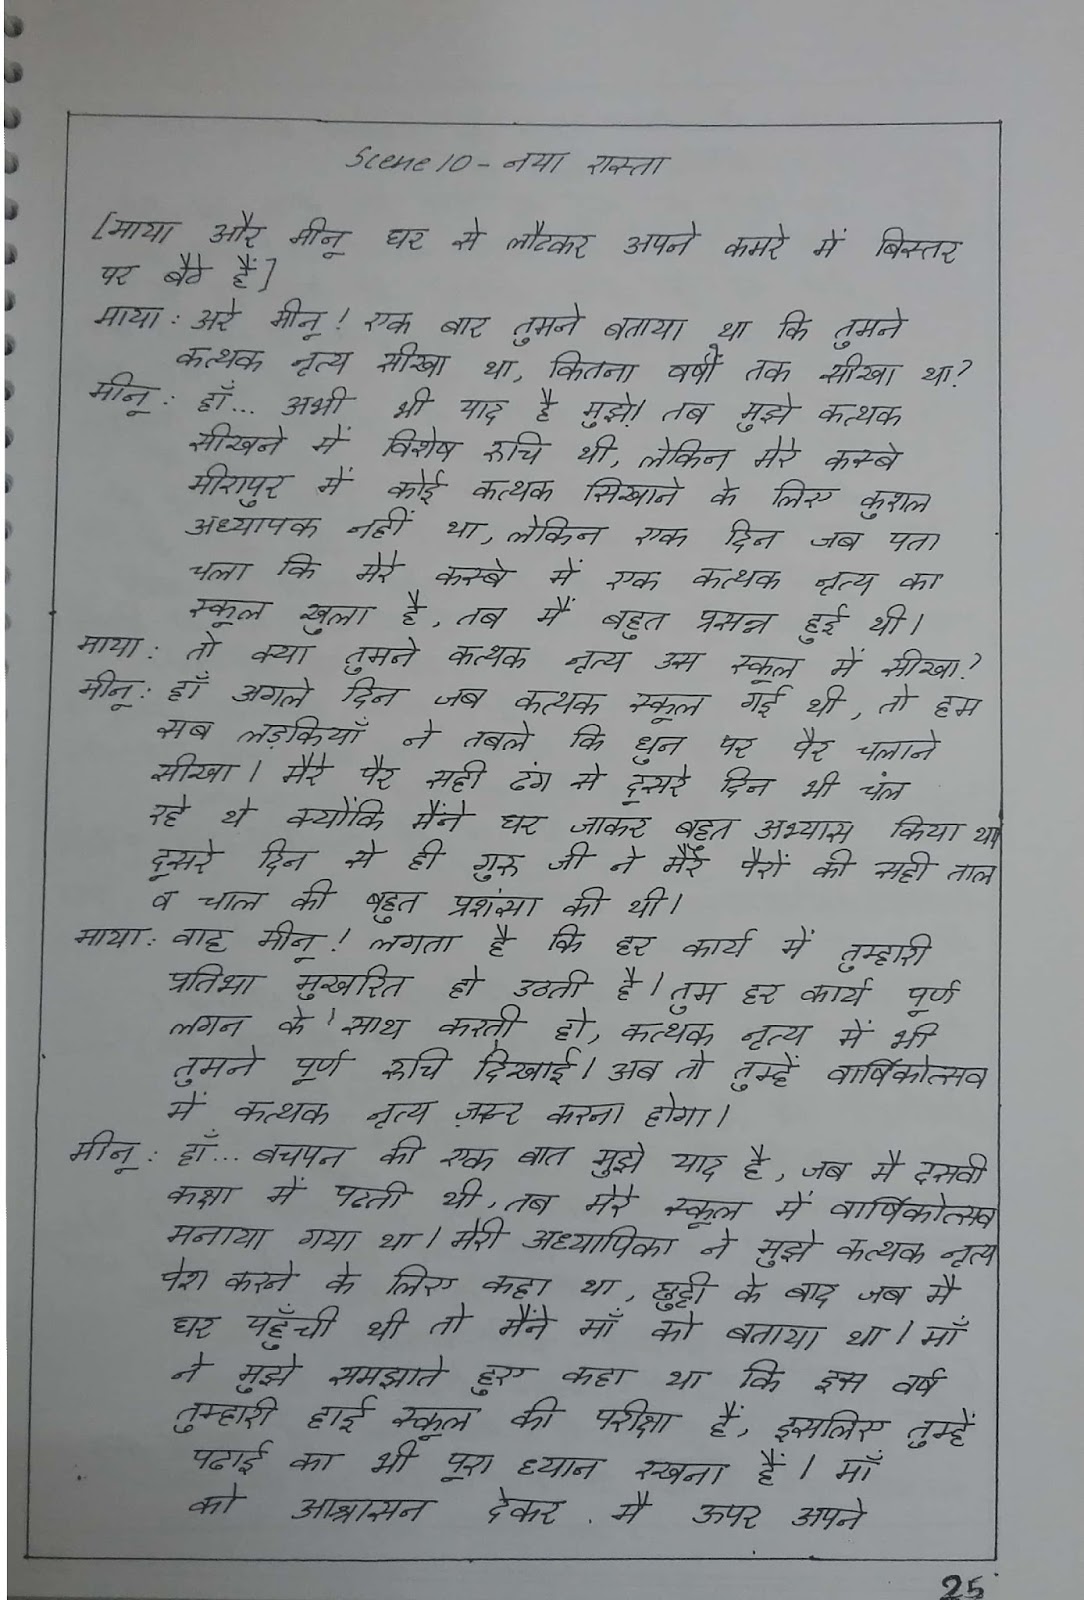 Scene 10 - नया रास्ता
[माया और मीनू घर से लौटकर अपने कमरे में बिस्तर
पर बैठे हैं]
माया : अरे मीनू! एक बार तुमने बताया था कि तुमने
कत्थक नृत्य सीखा था, कितना वर्षों तक सीखा था?
मीनू : हाँ... अभी भी याद है मुझे! तब मुझे कत्थक
सीखने में विशेष रुचि थी, लेकिन मेरे कस्बे
मीरापुर में कोई कत्थक सिखाने के लिए कुशल
अध्यापक नहीं था, लेकिन एक दिन जब पता
चला कि मेरे कस्बे में एक कत्थक नृत्य का
स्कूल खुला है, तब मैं बहुत प्रसन्न हुई थी।
माया : तो क्या तुमने कत्थक नृत्य उस स्कूल में सीखा?
मीनू : हाँ अगले दिन जब कत्थक स्कूल गई थी, तो हम
सब लड़कियाँ ने तबले कि धुन पर पैर चलाने
सीखा। मैरे पैर सही ढंग से दूसरे दिन भी चंल
रहे थे क्योंकि मैंने घर जाकर बहुत अभ्यास किया था
दूसरे दिन से ही गुरु जी ने मैरे पैरों की सही ताल
व चाल की बहुत प्रशंसा की थी।
माया : वाह मीनू! लगता है कि हर कार्य में तुम्हारी
प्रतिभा मुखरित हो उठती है। तुम हर कार्य पूर्ण
लगन के साथ करती हो, कत्थक नृत्य में भी
तुमने पूर्ण रुचि दिखाई। अब तो तुम्हें वार्षिकोत्सव
में कत्थक नृत्य ज़रूर करना होगा।
मीनू : हाँ... बचपन की एक बात मुझे याद है, जब मै दसवी
कक्षा में पढती थी, तब मेरे स्कूल में वार्षिकोत्सव
मनाया गया था। मेरी अध्यापिका ने मुझे कत्थक नृत्य
पेश करने के लिए कहा था, छुट्टी के बाद जब मै
घर पहुँची थी तो मैंने माँ को बताया था। माँ
ने मुझे समझाते हुए कहा था कि इस वर्ष
तुम्हारी हाई स्कूल की परीक्षा हैं, इसलिए तुम्हें
पढाई का भी पूरा ध्यान रखना हैं। माँ
को आश्रासन देकर . मै ऊपर अपने
25